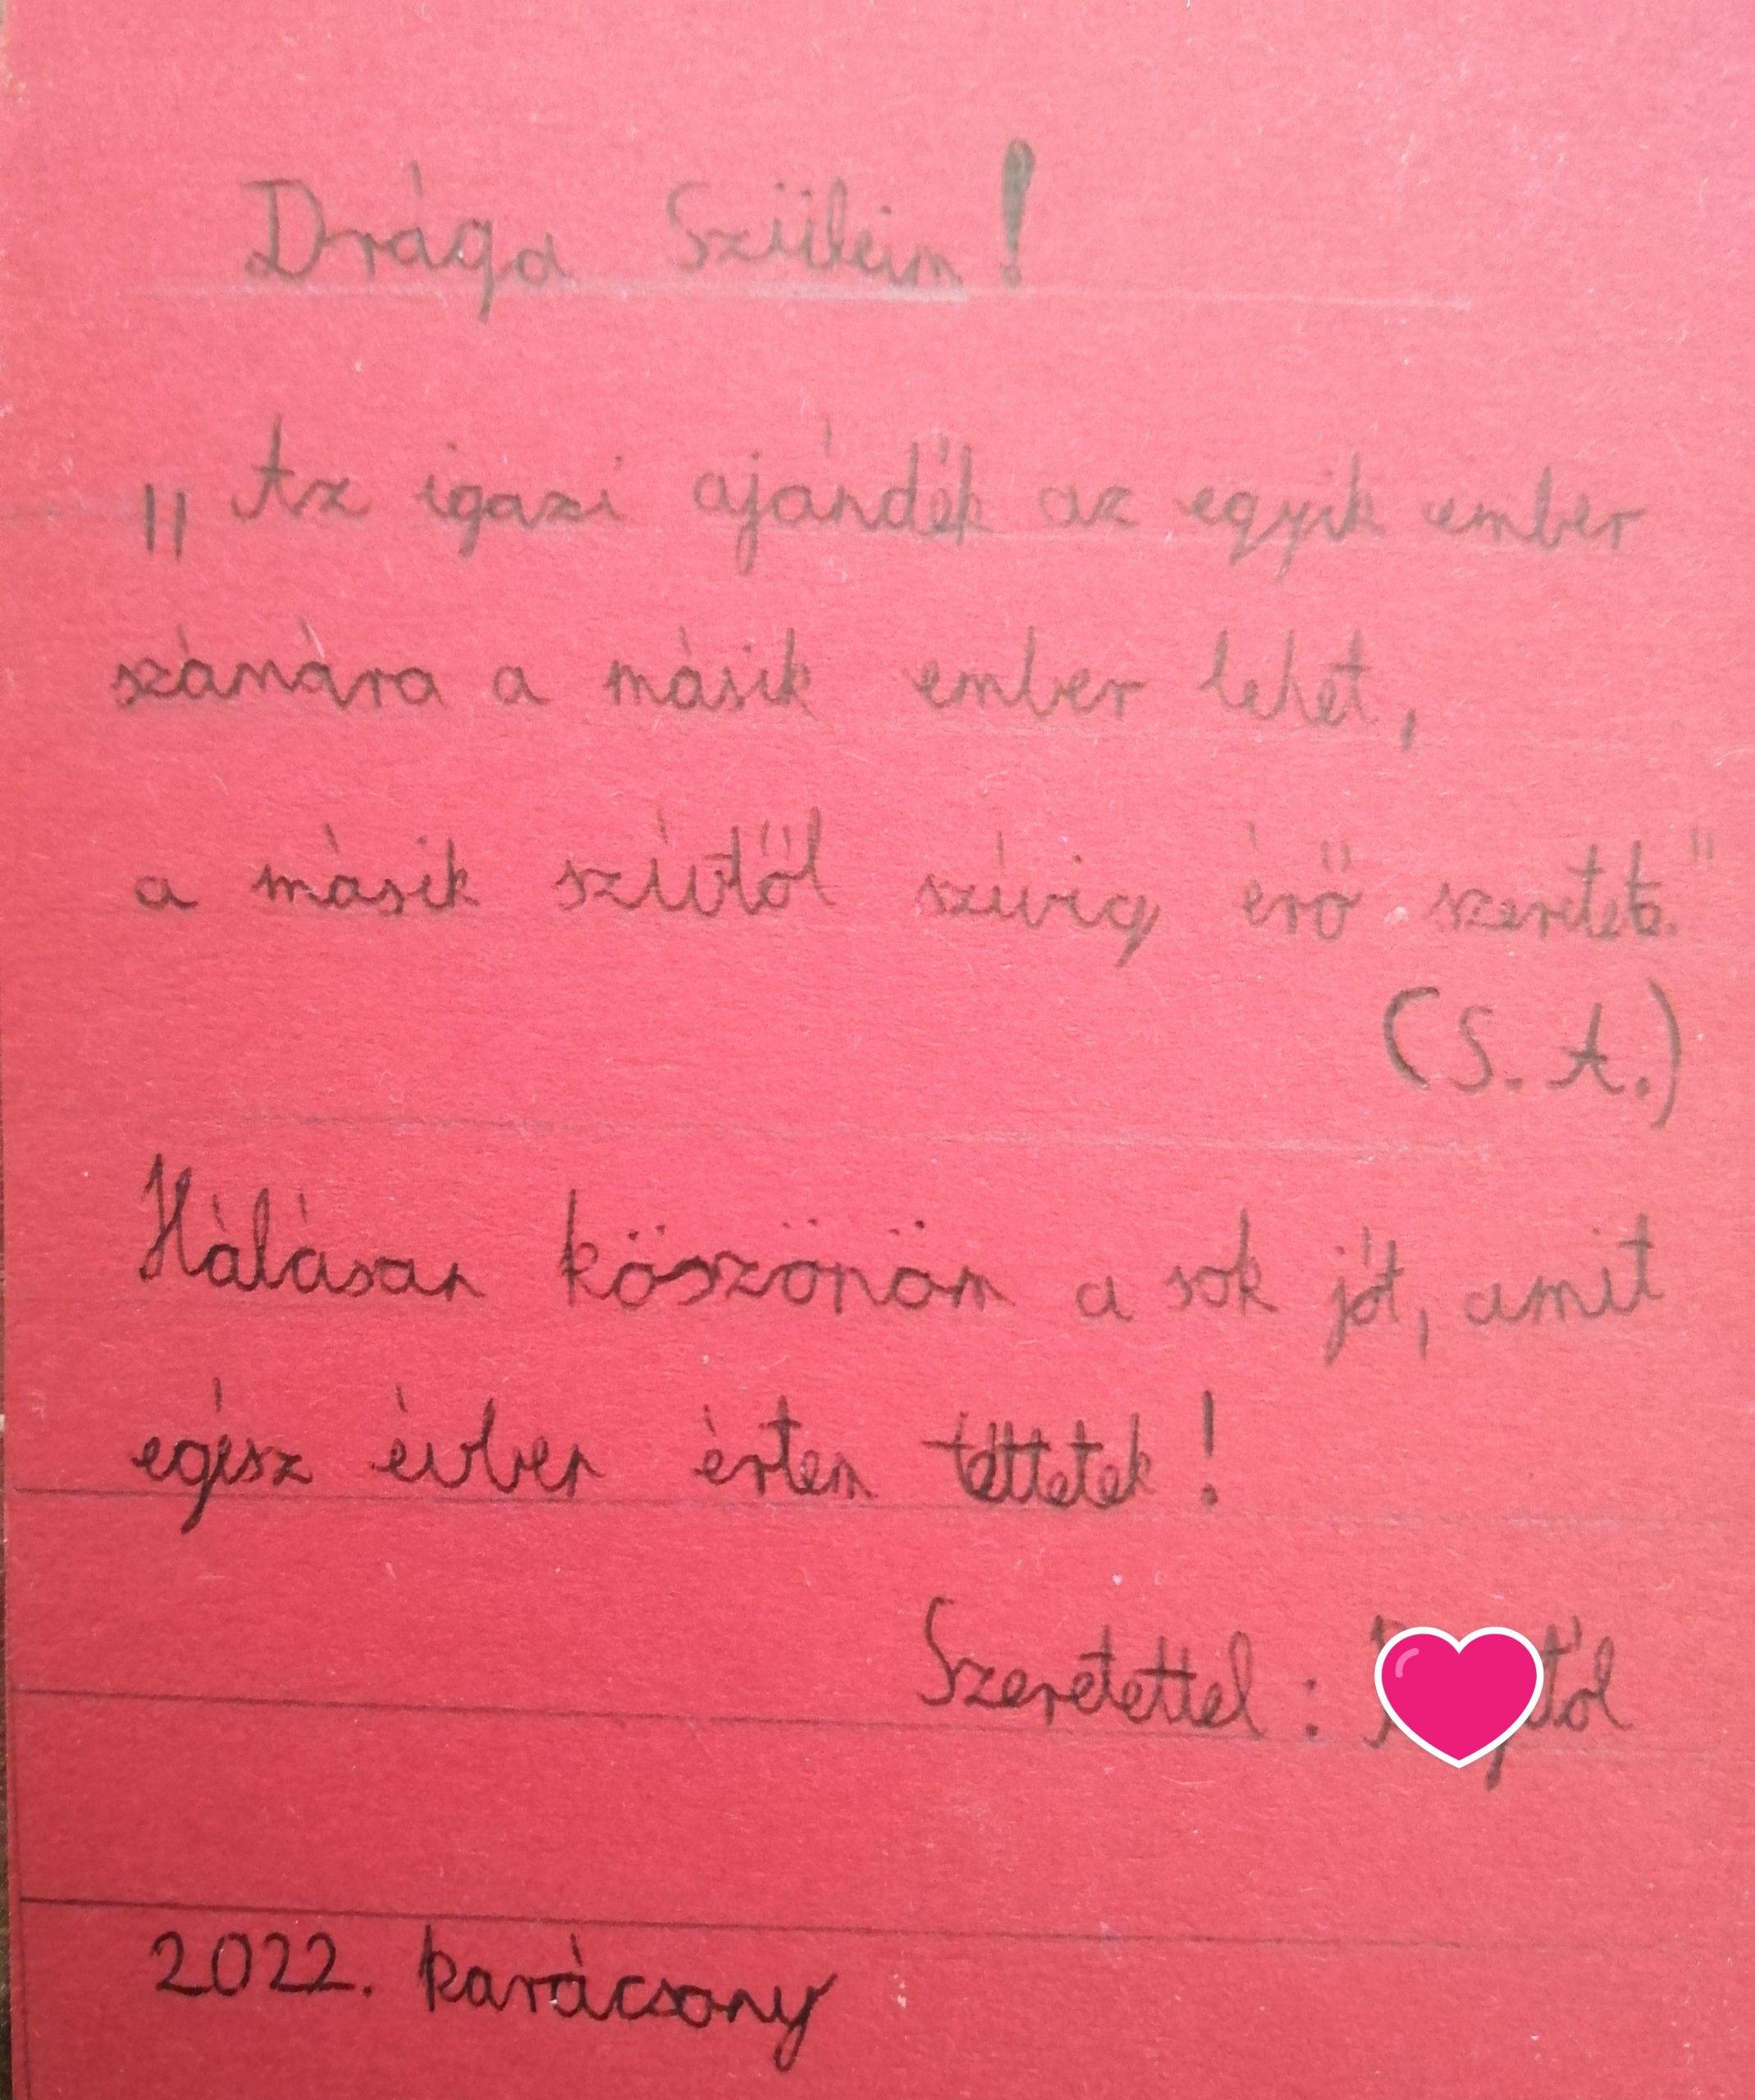 Drága Szüleim!
„Az igazi ajándék az egyik ember
számára a másik ember lehet,
a másik szívtől szívig érő szeretete."
(S. A.)
Hálásan köszönöm a sok jót, amit
egész évben értem tettetek!
Szeretettel:
2022. karácsony